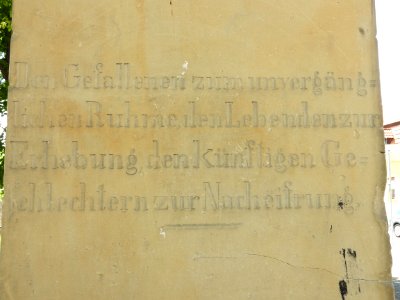 Den Gefallenen zum unvergäng=
lichen Ruhme, den Lebenden zur
Erhebung, den künftigen Ge=
schlechtern zur Nacheifrung.